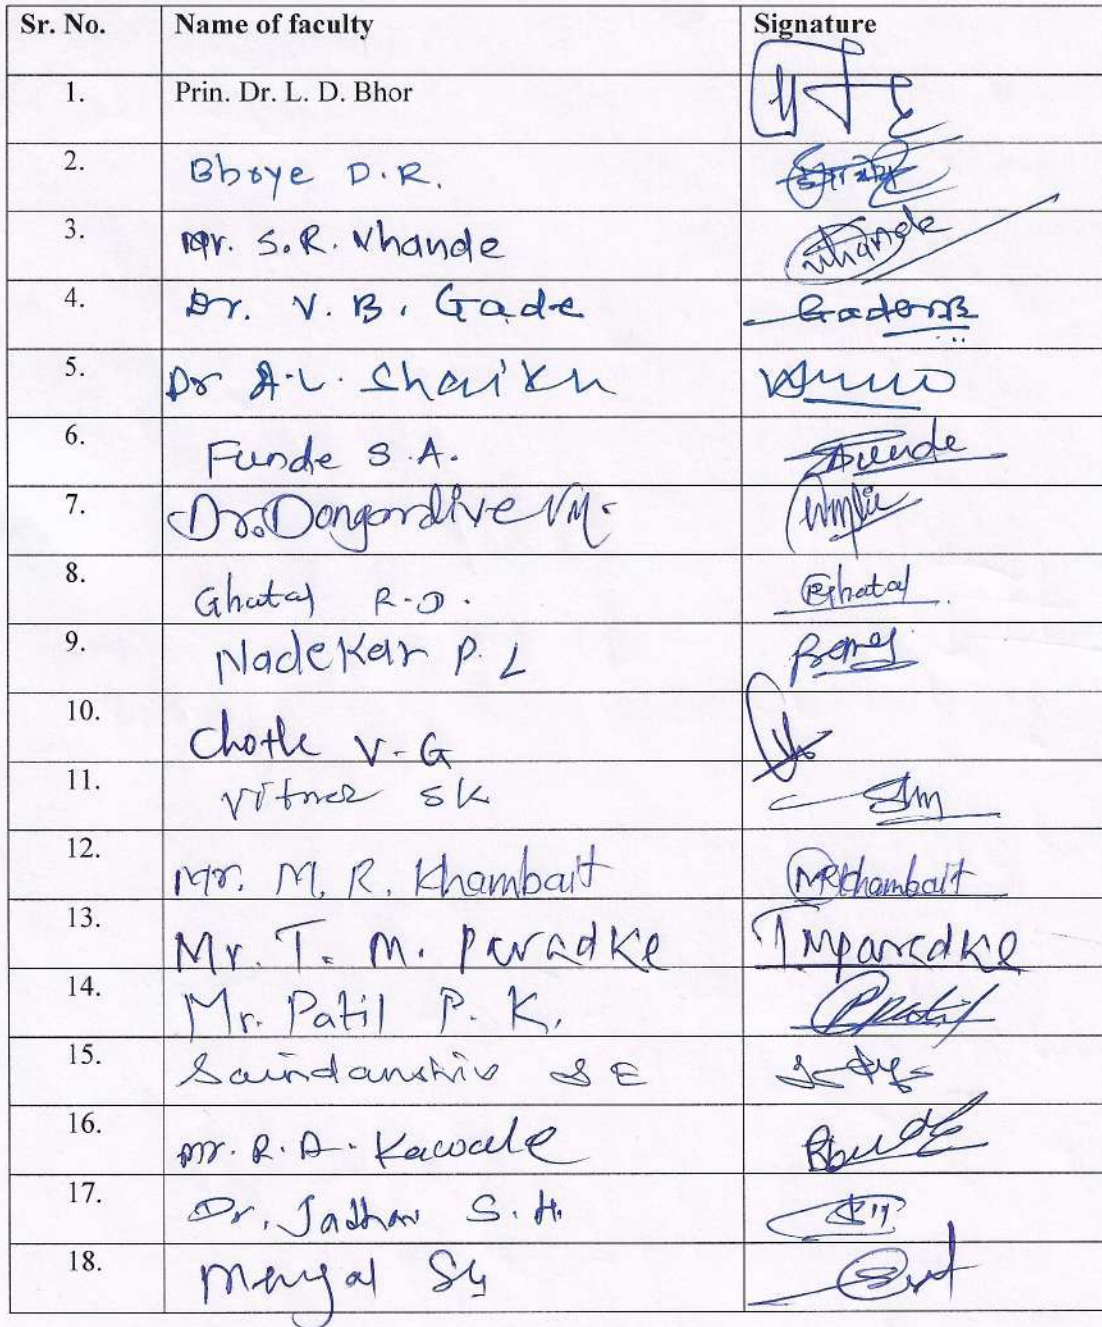 Sr. No. Name of faculty Signature
1. Prin. Dr. L. D. Bhor
2. Bhoye D.R.
3. Mr. S.R. Vhande Vhande
4. Dr. V. B. Gade
5. Dr A.L. Shaikh
6. Funde S.A. Funde
7. Dr. Dongardive V.M.
8. Ghatal R.D. Ghatal
9. Nadekar P. L
10. Chothe V-G
11. SK
12. Mr. M. R. Khambait MRKhambait
13. Mr. T. M. Paradke TMParadke
14. Mr. Patil P. K. PKPatil
15. Saindanshiv S E
16. Mr. R. A. Kawale
17. Dr. Jadhav S. H.
18. Mengal SG